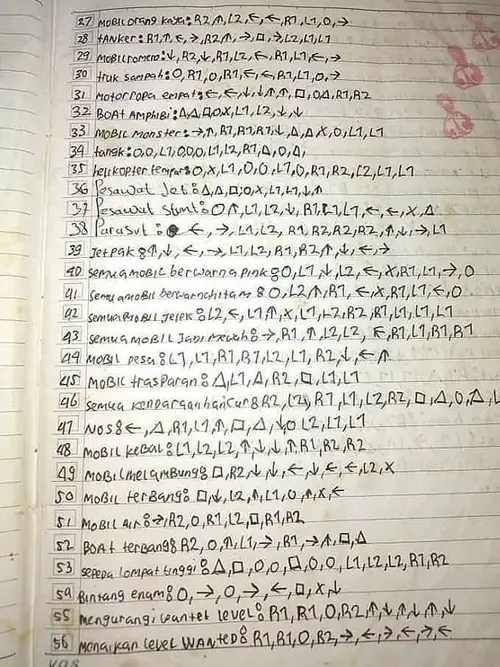 27 MOBIL orang kaya: R2,↑,L2,←,←,R1,L1,O,→
28 tANKer: R1,↑,←,→,R2,↑,→,□,→,L2,L1,L1
29 MOBIL romero: ↓,R2,↓,R1,L2,←,R1,L1,←,→
30 truk sampah: O,R1,O,R1,←,←,R1,L1,O,→
31 motor ropa empat: ←,←,↓,↓,↑,↑,□,O,△,R1,R2
32 BOAt AMPHIBI: △,△,□,O,X,L1,L2,↓,↓
33 MOBIL monster: →,↑,R1,R1,R1,↓,△,△,X,O,L1,L1
34 tangk: O,O,L1,O,O,O,L1,L2,R1,△,O,△,
35 helikopter tempur: O,X,L1,O,O,L1,O,R1,R2,L2,L1,L1
36 Pesawat Jet: △,△,□,O,X,L1,L1,↓,↑
37 Pesawat stunt: O,↑,L1,L2,↓,R1,L1,L1,←,←,X,△
38 Parasut : ←,→,L1,L2,R1,R2,R2,R2,↑,↓,→,L1
39 JetPak: ↑,↓,←,→,L1,L2,R1,R2,↑,↓,←,→
40 semua mobil berwarna pink: O,L1,↓,L2,←,X,R1,L1,→,O
41 semua mobil berwarna hitam: O,L2,↑,R1,←,X,R1,L1,←,O
42 semua mobil Jelek: L2,←,L1,↑,X,L1,L2,R2,R1,L1,L1,L1
43 semua MOBIL Jadi Mewah: →,R1,↑,L2,L2,←,R1,L1,R1,R1
44 MOBIL pesa: L1,L1,R1,R1,L2,L1,R2,↓,←,↑
45 MOBIL trasParan: △,L1,△,R2,□,L1,L1
46 semua kendaraan hancur: R2,L2,R1,L1,L2,R2,□,△,O,△,L
47 NOS: ←,△,R1,L1,↑,□,△,↓,O,L2,L1,L1
48 MOBIL kebal: L1,L2,L2,↑,↓,↓,↑,R1,R2,R2
49 MOBIL melambung: □,R2,↓,↓,←,↓,←,←,L2,X
50 MOBIL terbang: □,↓,L2,↑,L1,O,↑,X,←
51 MOBIL air: →,R2,O,R1,L2,□,R1,R2
52 BOAt terbang: R2,O,↑,L1,→,R1,→,↑,□,△
53 sepeda lompat tinggi: △,□,O,O,□,O,O,L1,L2,L2,R1,R2
54 Bintang enam: O,→,O,→,←,□,X,↓
55 mengurangi wantet level: R1,R1,O,R2,↑,↓,↑,↓,↑,↓
56 Menaikan level WANTED: R1,R1,O,R2,→,←,→,←,→,←